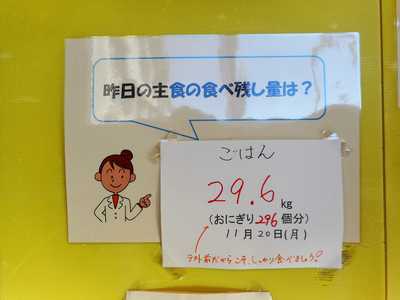 昨日の主食の食べ残し量は？
ごはん
29.6 kg
(おにぎり296個分)
11月20日(月)
だからこそ、しっかり食べましょう！